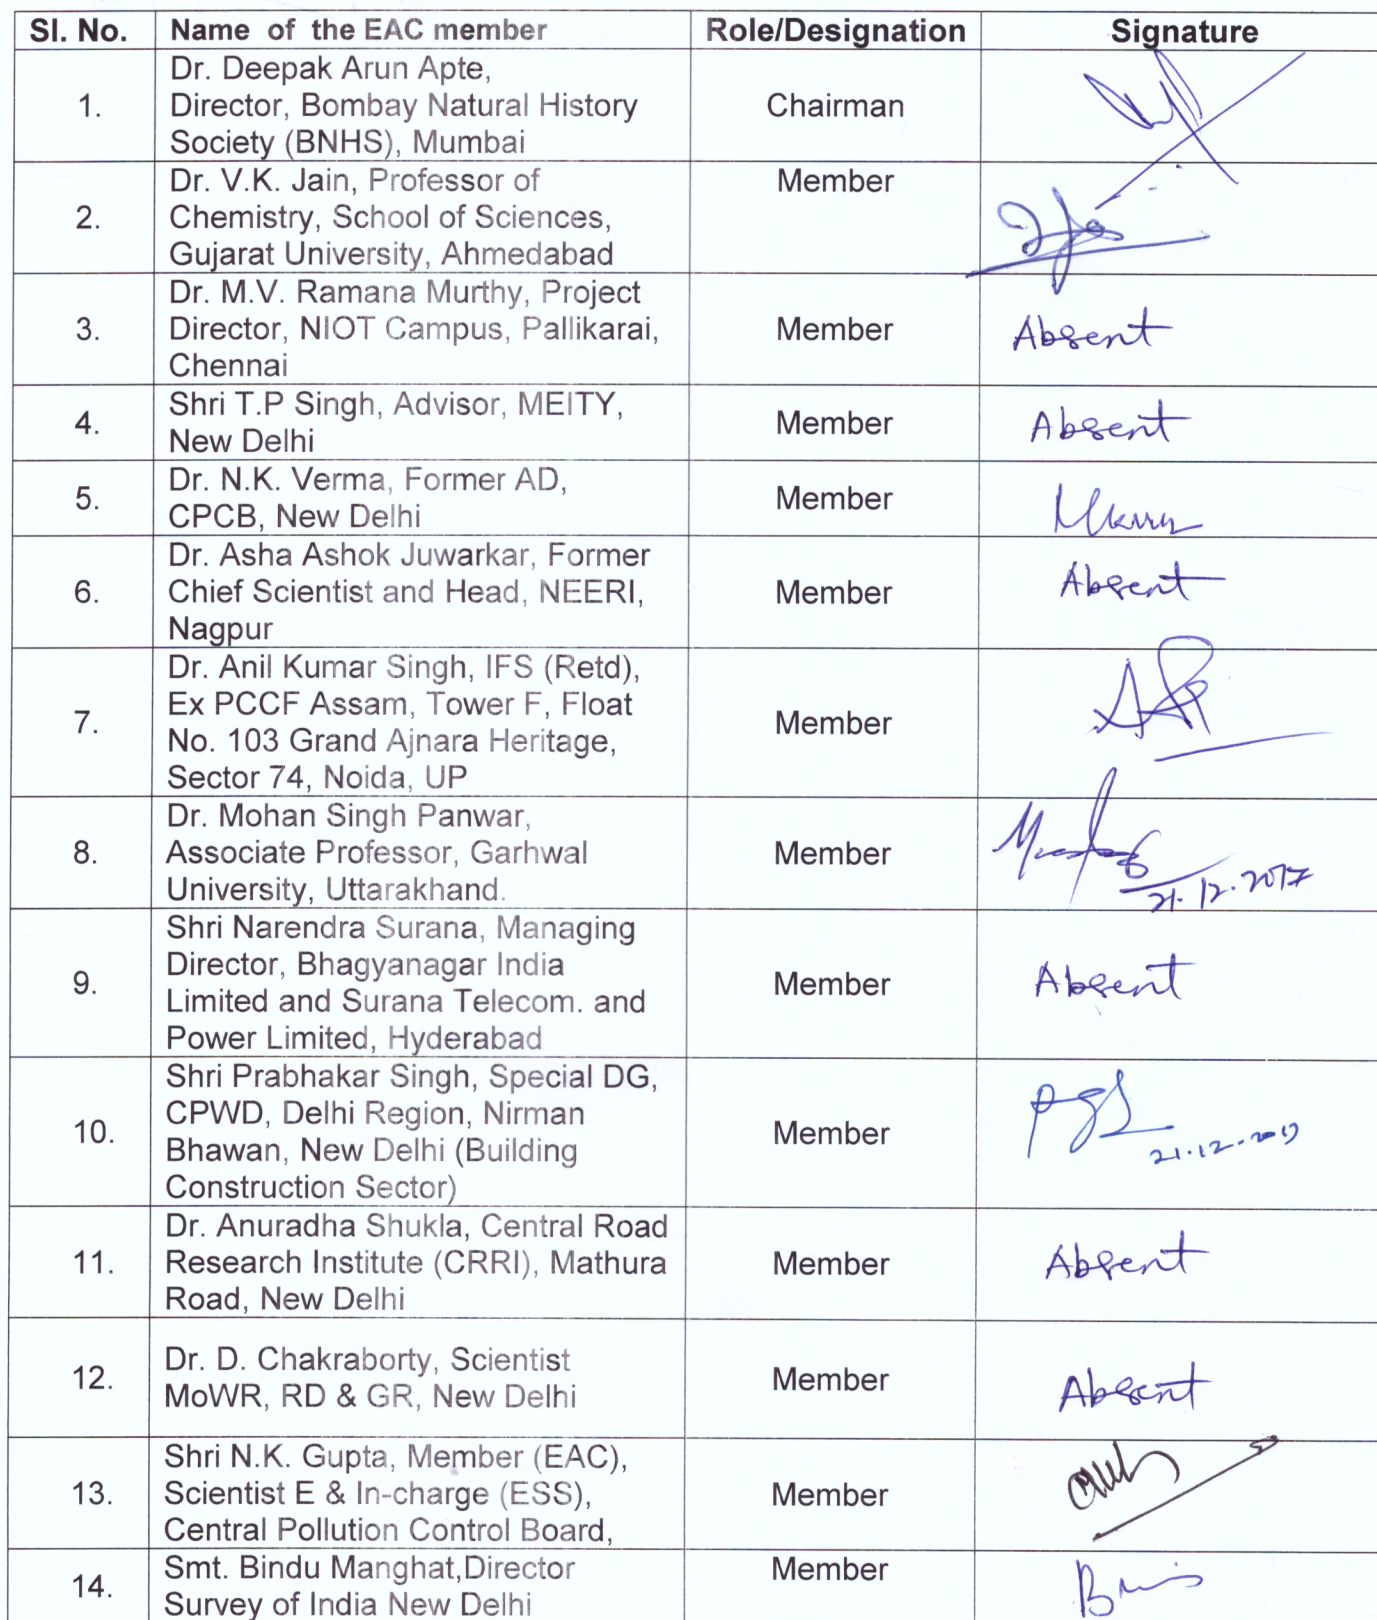 Sl. No. Name of the EAC member Role/Designation Signature
1. Dr. Deepak Arun Apte,
Director, Bombay Natural History
Society (BNHS), Mumbai
Chairman
2. Dr. V.K. Jain, Professor of
Chemistry, School of Sciences,
Gujarat University, Ahmedabad
Member
3. Dr. M.V. Ramana Murthy, Project
Director, NIOT Campus, Pallikarai,
Chennai
Member Absent
4. Shri T.P Singh, Advisor, MEITY,
New Delhi
Member Absent
5. Dr. N.K. Verma, Former AD,
CPCB, New Delhi
Member
6. Dr. Asha Ashok Juwarkar, Former
Chief Scientist and Head, NEERI,
Nagpur
Member Absent
7. Dr. Anil Kumar Singh, IFS (Retd),
Ex PCCF Assam, Tower F, Float
No. 103 Grand Ajnara Heritage,
Sector 74, Noida, UP
Member
8. Dr. Mohan Singh Panwar,
Associate Professor, Garhwal
University, Uttarakhand.
Member
21.12.2017
9. Shri Narendra Surana, Managing
Director, Bhagyanagar India
Limited and Surana Telecom. and
Power Limited, Hyderabad
Member Absent
10. Shri Prabhakar Singh, Special DG,
CPWD, Delhi Region, Nirman
Bhawan, New Delhi (Building
Construction Sector)
Member
21.12.2017
11. Dr. Anuradha Shukla, Central Road
Research Institute (CRRI), Mathura
Road, New Delhi
Member Absent
12. Dr. D. Chakraborty, Scientist
MoWR, RD & GR, New Delhi
Member Absent
13. Shri N.K. Gupta, Member (EAC),
Scientist E & In-charge (ESS),
Central Pollution Control Board,
Member
14. Smt. Bindu Manghat,Director
Survey of India New Delhi
Member